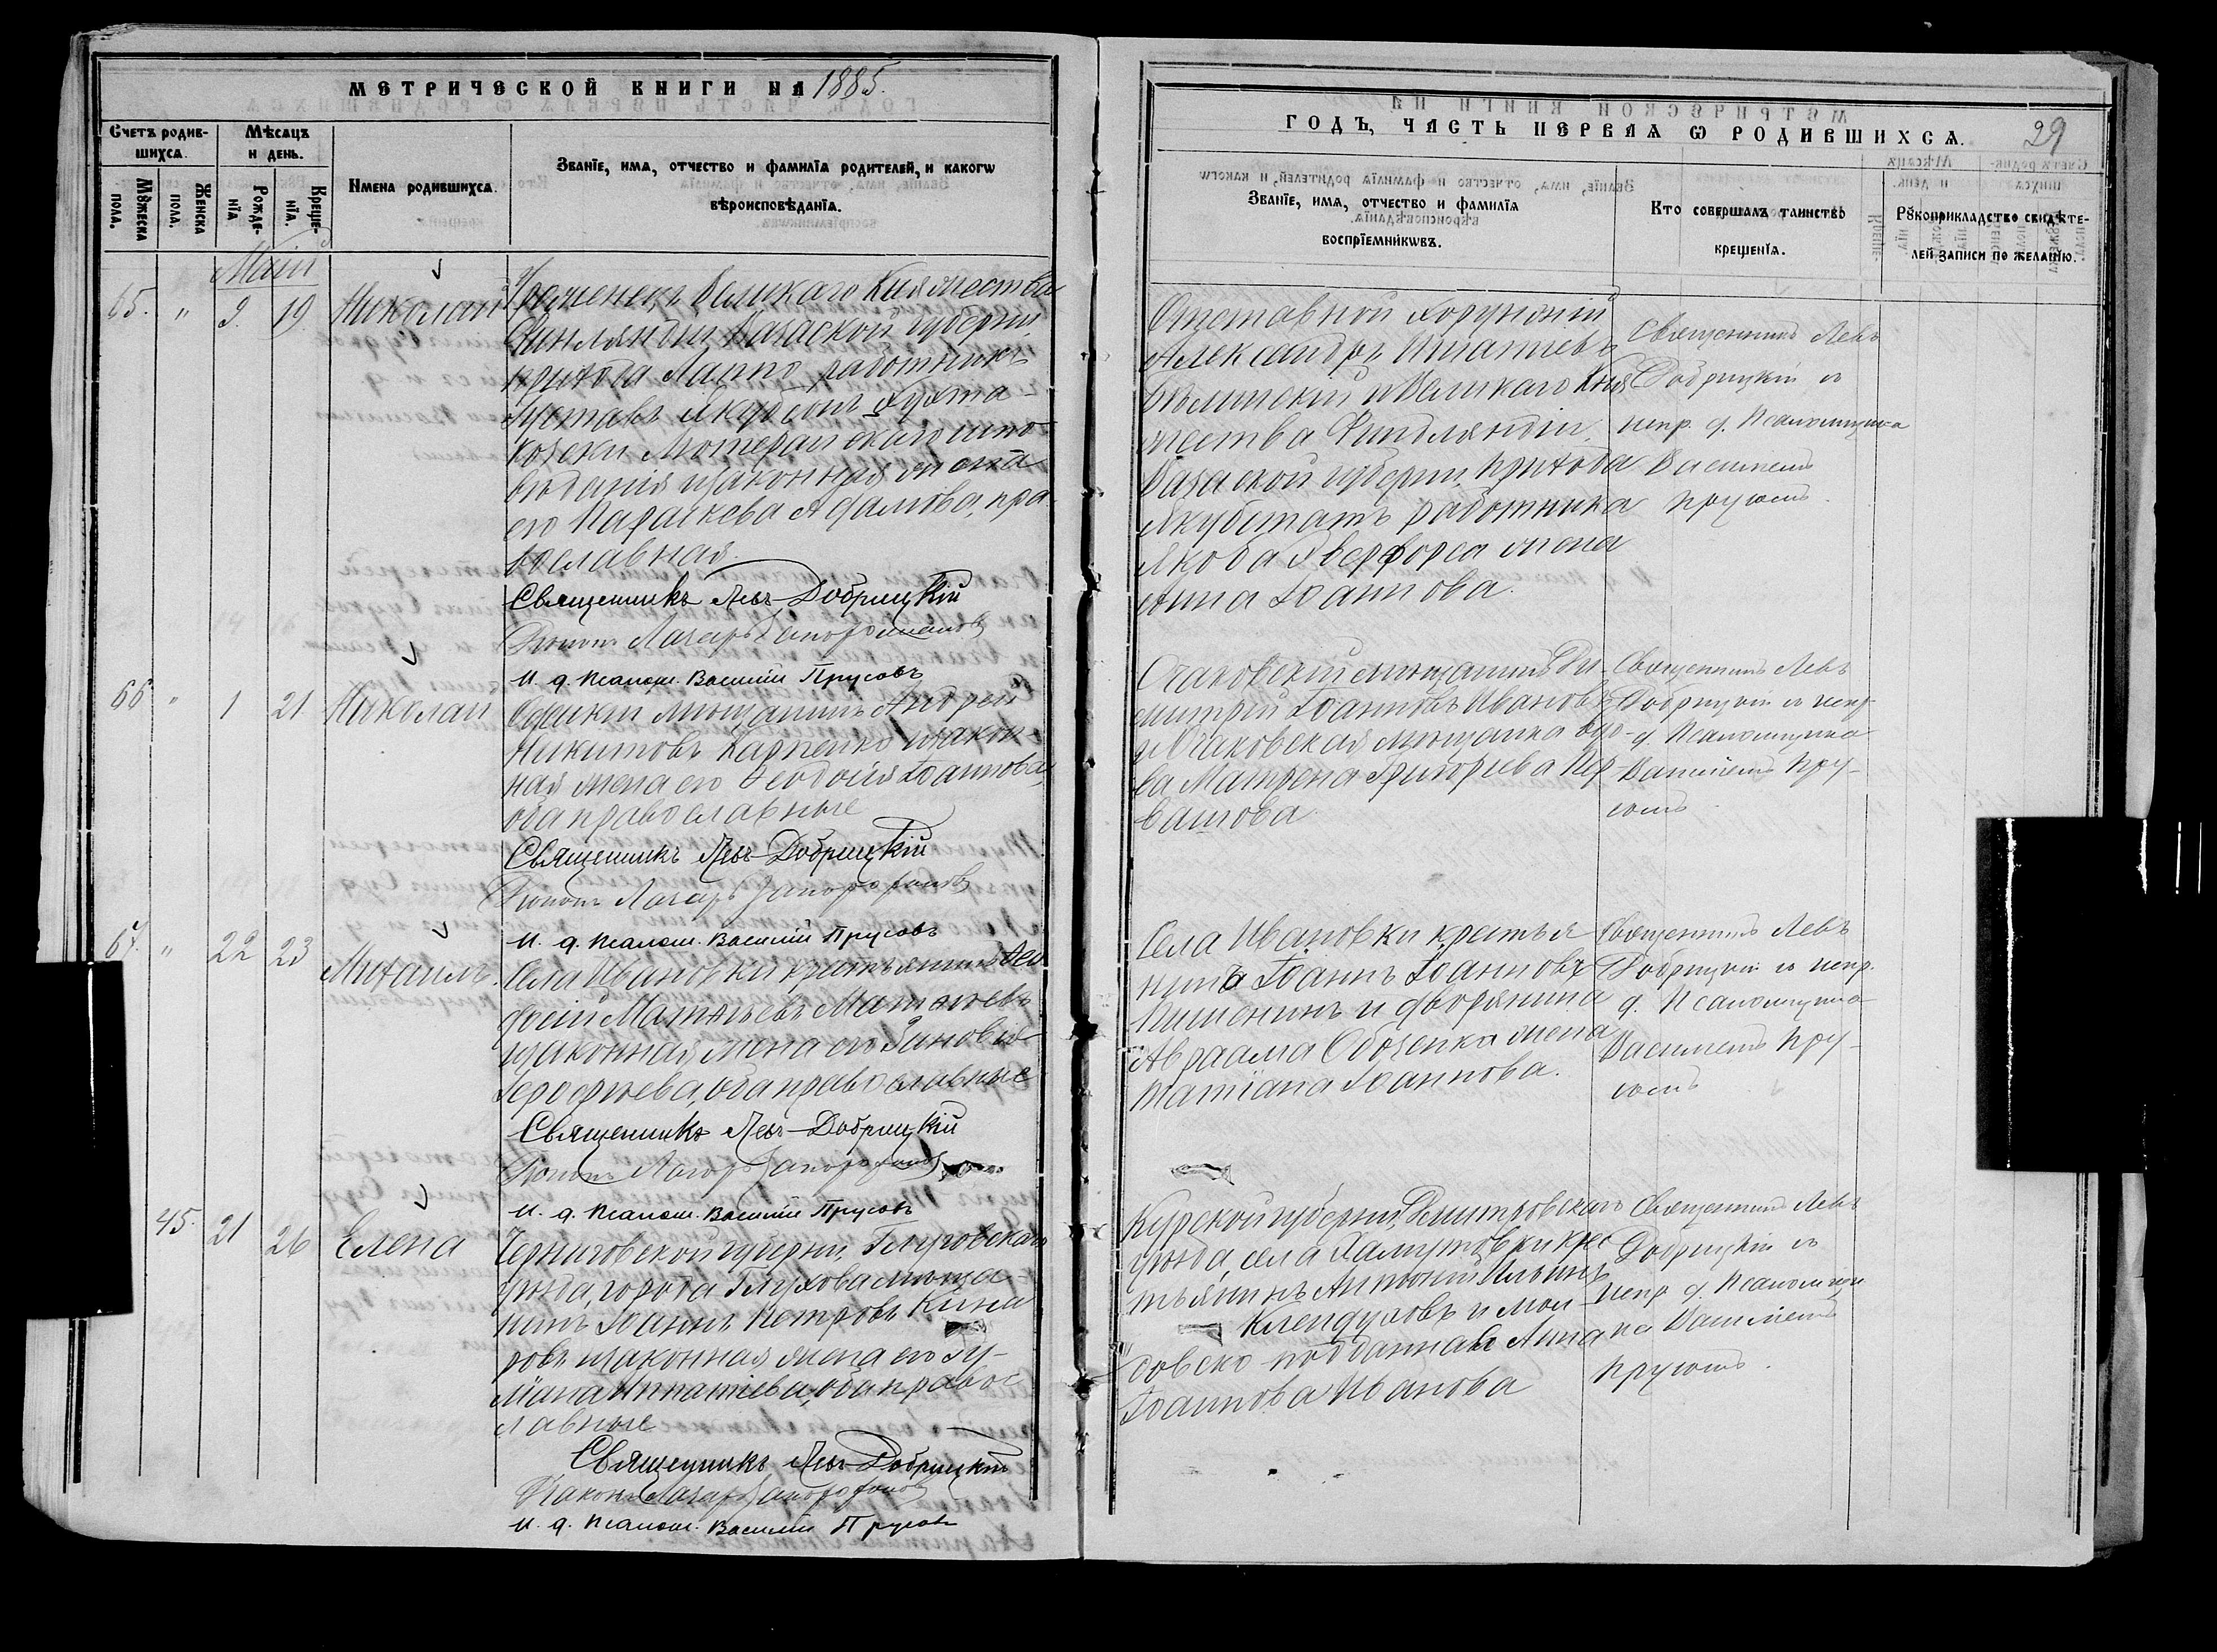 МЕТРИЧЕСКОЙ КНИГИ НА 1885.
Счетъ родив-
шихся.
Мѣсяцъ
и день.
Имена родившихся.
Званіе, имя, отчество и фамилія родителей, и какогѡ
вѣроисповѣданія.
Мужеска
пола.
Женска
пола.
Рожде-
нія
Креще-
нія.
Маій
65. " 9. 19 Николай
Уроженецъ Великаго Княжества
Финляндіи Вазаской губерніи
прихода Лаппо, работникъ
Густавъ Якубсонъ
Лютеранскаго испо-
вѣданія и законная жена
его Параскева Адамова, пра-
вославная.
Священникъ Левъ Добрицкій
Діаконъ Лазарь
И. д. псалом. Василій Прусовъ
66 " 1 21 Николай
Мѣщанинъ Андрей
Никитовъ Карпенко и закон-
ная жена его Ѳеодосія Іоаннова,
оба православные
Священникъ Левъ Добрицкій
Діаконъ Лазарь
И. д. псалом. Василій Прусовъ
67. " 22 23 Михаилъ.
Села Ивановки крестьянинъ
Матѳіевъ
и законная жена его Зиновія
оба православные
Священникъ Левъ Добрицкій
Діаконъ Лазарь
И. д. псалом. Василій Прусовъ
45. 21 26 Елена
Черниговской губерніи, Глуховскаго
уѣзда, города Глухова мѣща-
нинъ Іоаннъ Петровъ
и законная жена его Іу-
ліана Игнатіева, оба правос-
лавные
Священникъ Левъ Добрицкій
Діаконъ Лазарь
И. д. псалом. Василій Прусовъ
ГОДЪ, ЧАСТЬ ПЕРВАЯ Ѡ РОДИВШИХСЯ. 29
Званіе, имя, отчество и фамилія
воспріемникѡвъ.
Кто совершалъ таинство
крещенія.
Рꙋкоприкладство свидѣте-
лей записи по желанію.
Отставной хорунжій
Александръ Игнатіевъ
Бѣлинскій и Великаго Кня-
жества Финдляндіи,
Вазаской губерніи, прихода
Якубстатъ работника
Якова жена
Анна Іоаннова.
Священникъ Левъ
Добрицкій съ
испр. д. Псаломщика
Василіемъ
Прусовъ.
Очаковскій мѣщанинъ Ди-
митрій Іоанновъ Ивановъ
и Очаковская мѣщанка вдо-
ва Матрона Григорьева Пер-
ванова
Священникъ Левъ
Добрицкій съ испр.
д. Псаломщика
Василіемъ Пру-
совъ
Села Ивановки крестья-
нинъ Іоаннъ Іоанновъ
и дворянина
Авраама жена
Татіана Іоаннова.
Священникъ Левъ
Добрицкій съ испр.
д. Псаломщика
Василіемъ Пру-
совъ
Курской губерніи, Дмитровскаго
уѣзда, села Халиповки крес-
тьянинъ Антоній Ильинъ
и Мол-
довско-подданная Анна
Іоаннова Иванова
Священникъ Левъ
Добрицкій съ
испр. д. Псаломщи-
ка Василіемъ
Прусовъ.